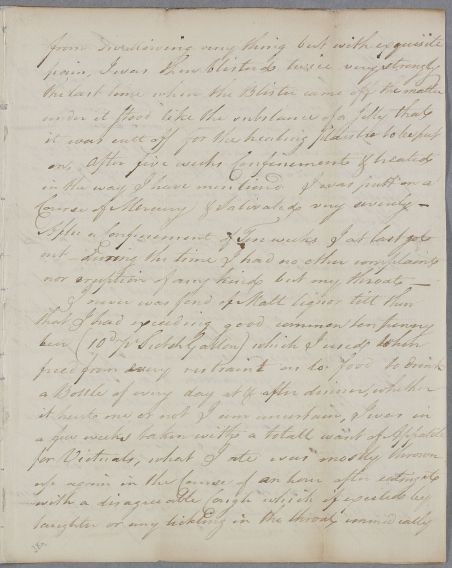 from swallowing any thing but with exquisite
pain, I was then blister'd twice very strongly
the last time when the Blister came off the matter
under it stood like the substance of a Jelly that
it was cutt off for the healing plaister to be put
on. After five weeks Confinement & treated
in the way I have mentiond I was putt on a
Course of Mercury & Salivated very severely –
After a Confinement of Ten weeks I at last got
out during the time I had no other complaint
nor eruption of any kind but my throat –
I never was fond of Malt liquor till then
that I had exceeding good common tenpenny
beer (10d pr Scotch Gallon) which I used when
freed from every restraint as to food to drink
a Bottle of every day at & after dinner, whether
it hurt me or not I am uncertain, I was in
a few weeks taken with a totall want of Appetite
for Victuals, what I ate was mostly thrown
up again in the Course of an hour after eating it
with a disagreeable Cough which if excited by
laughter or any tickling in the throat immediatly